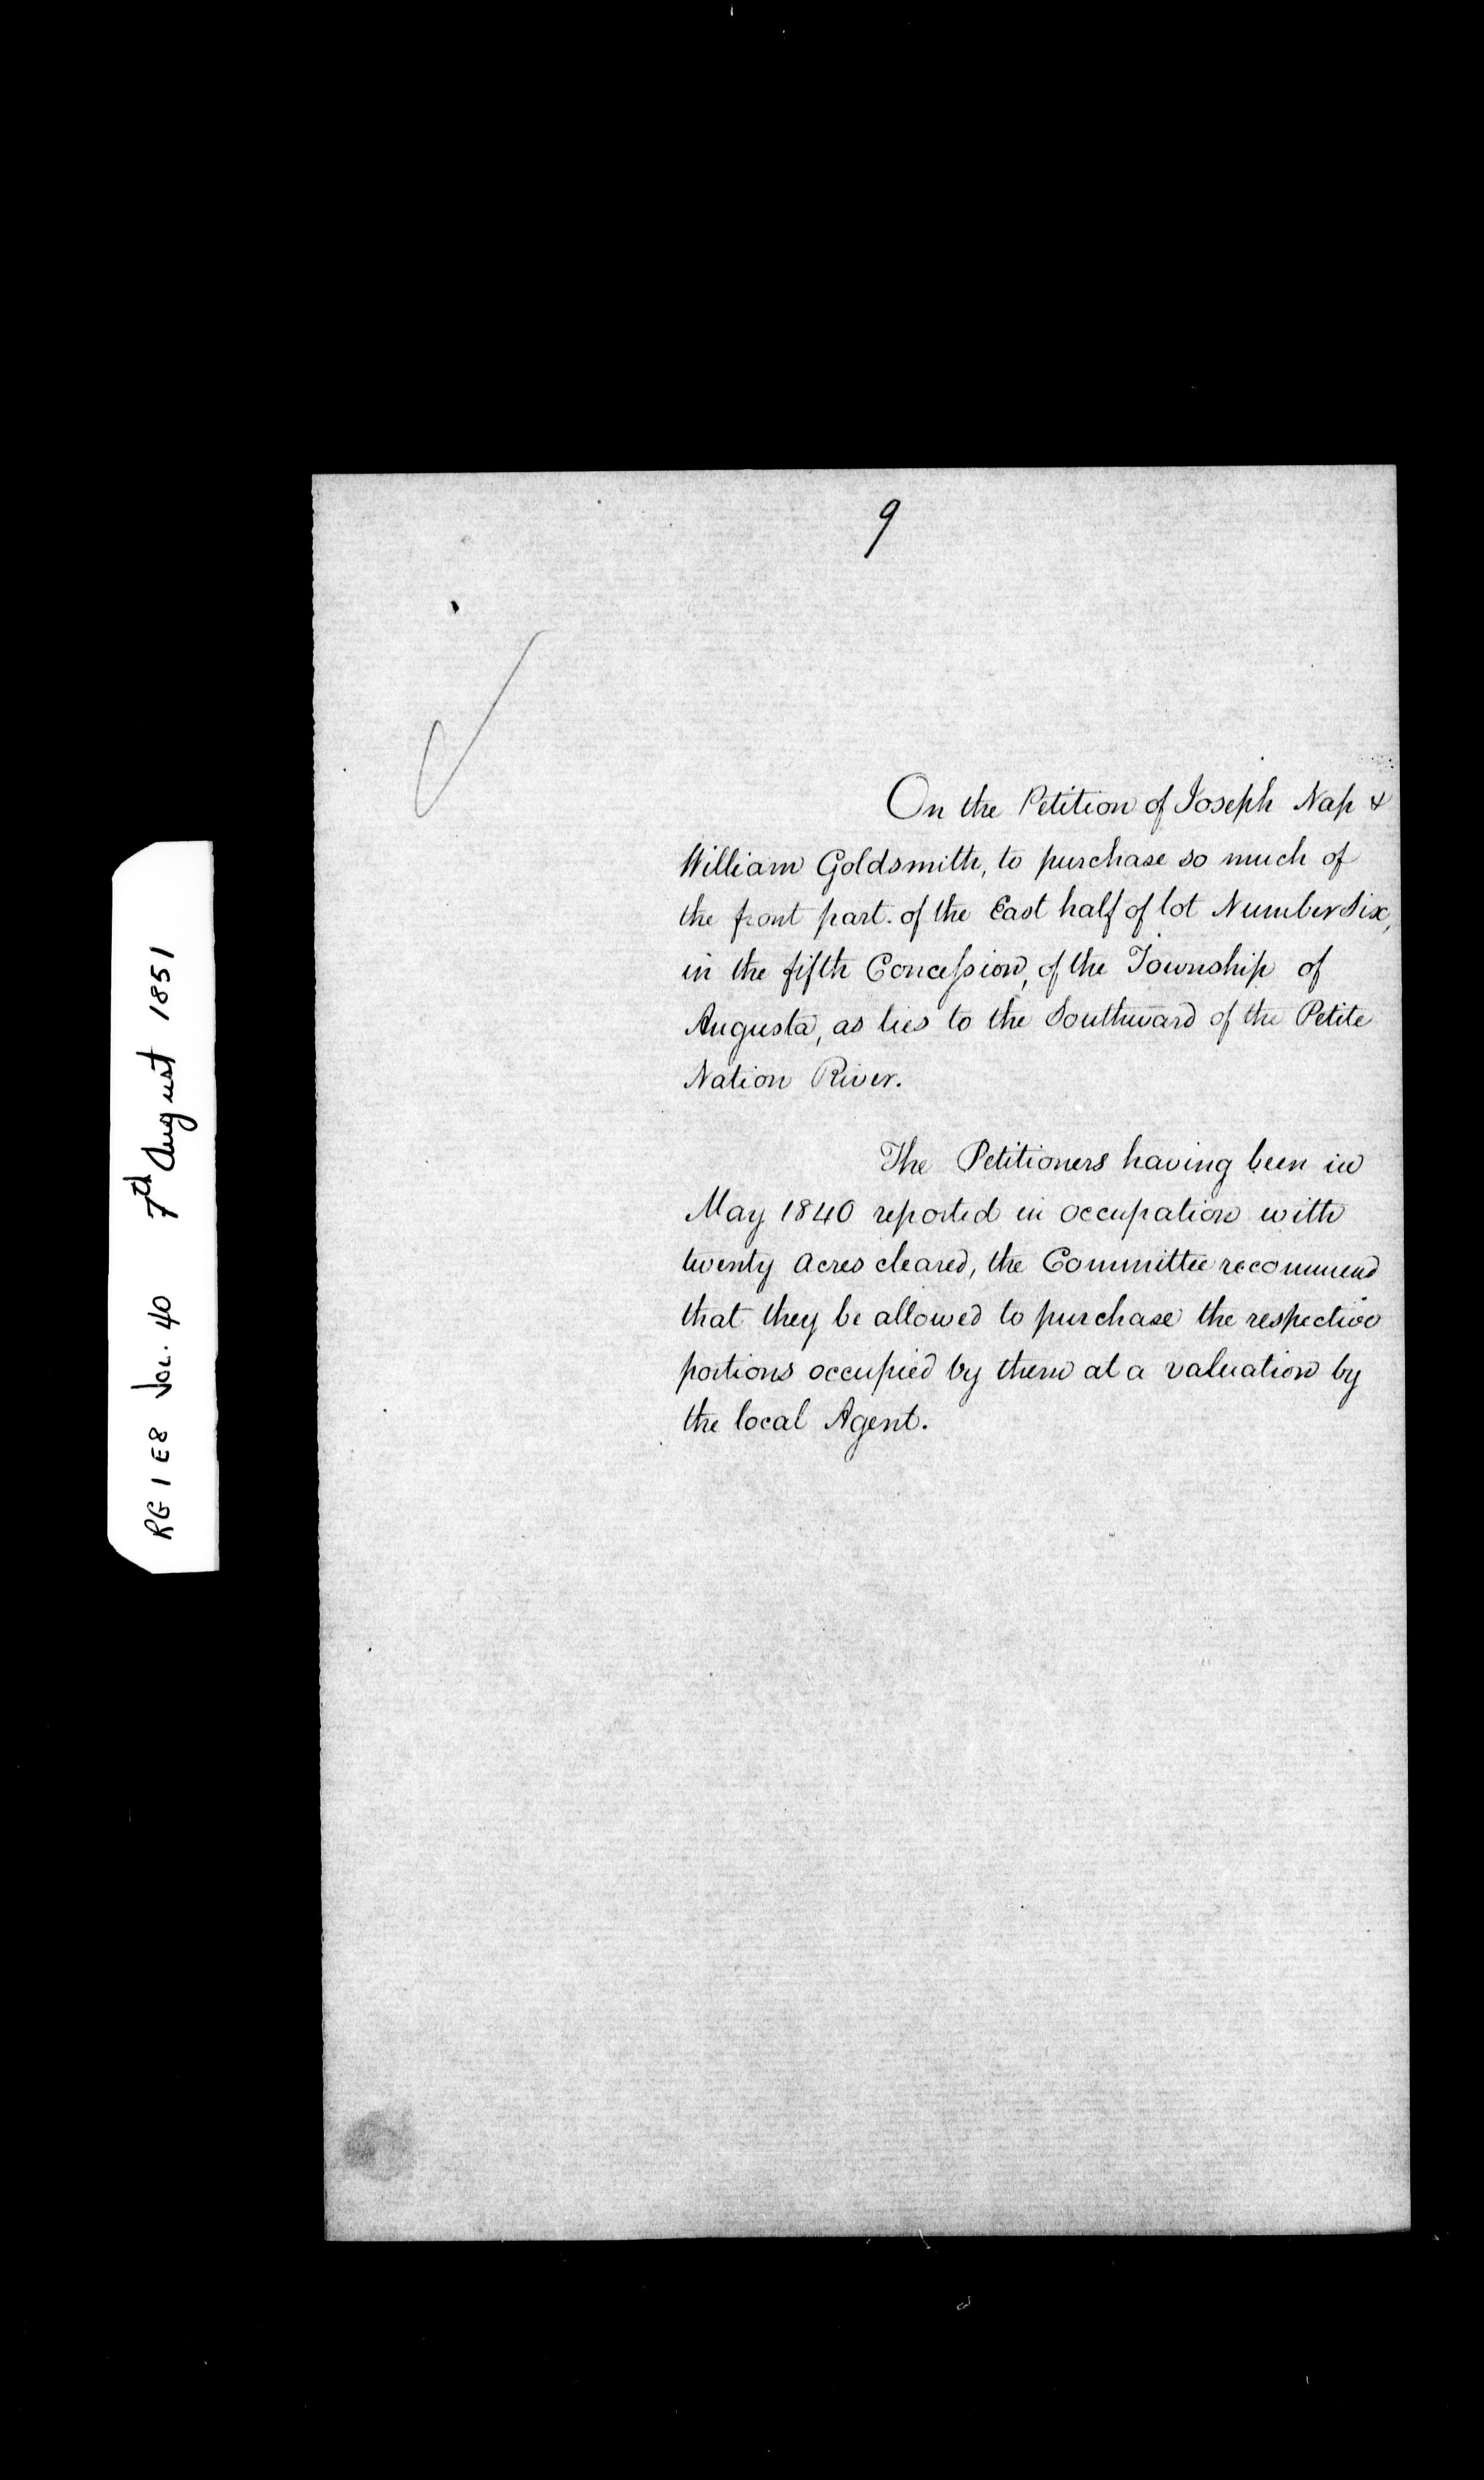 RG 1 E8 Vol. 40 7th August 1851
9
On the Petition of Joseph Nass &
William Goldsmith, to purchase so much of
the front part. of the East half of lot Number Six,
in the fifth Concession, of the Township of
Augusta, as lies to the Southward of the Petite
Nation River.
The Petitioners having been in
May 1840 reported in occupation with
twenty acres cleared, the Committee recommend
that they be allowed to purchase the respective
portions occupied by them at a valuation by
the local Agent.